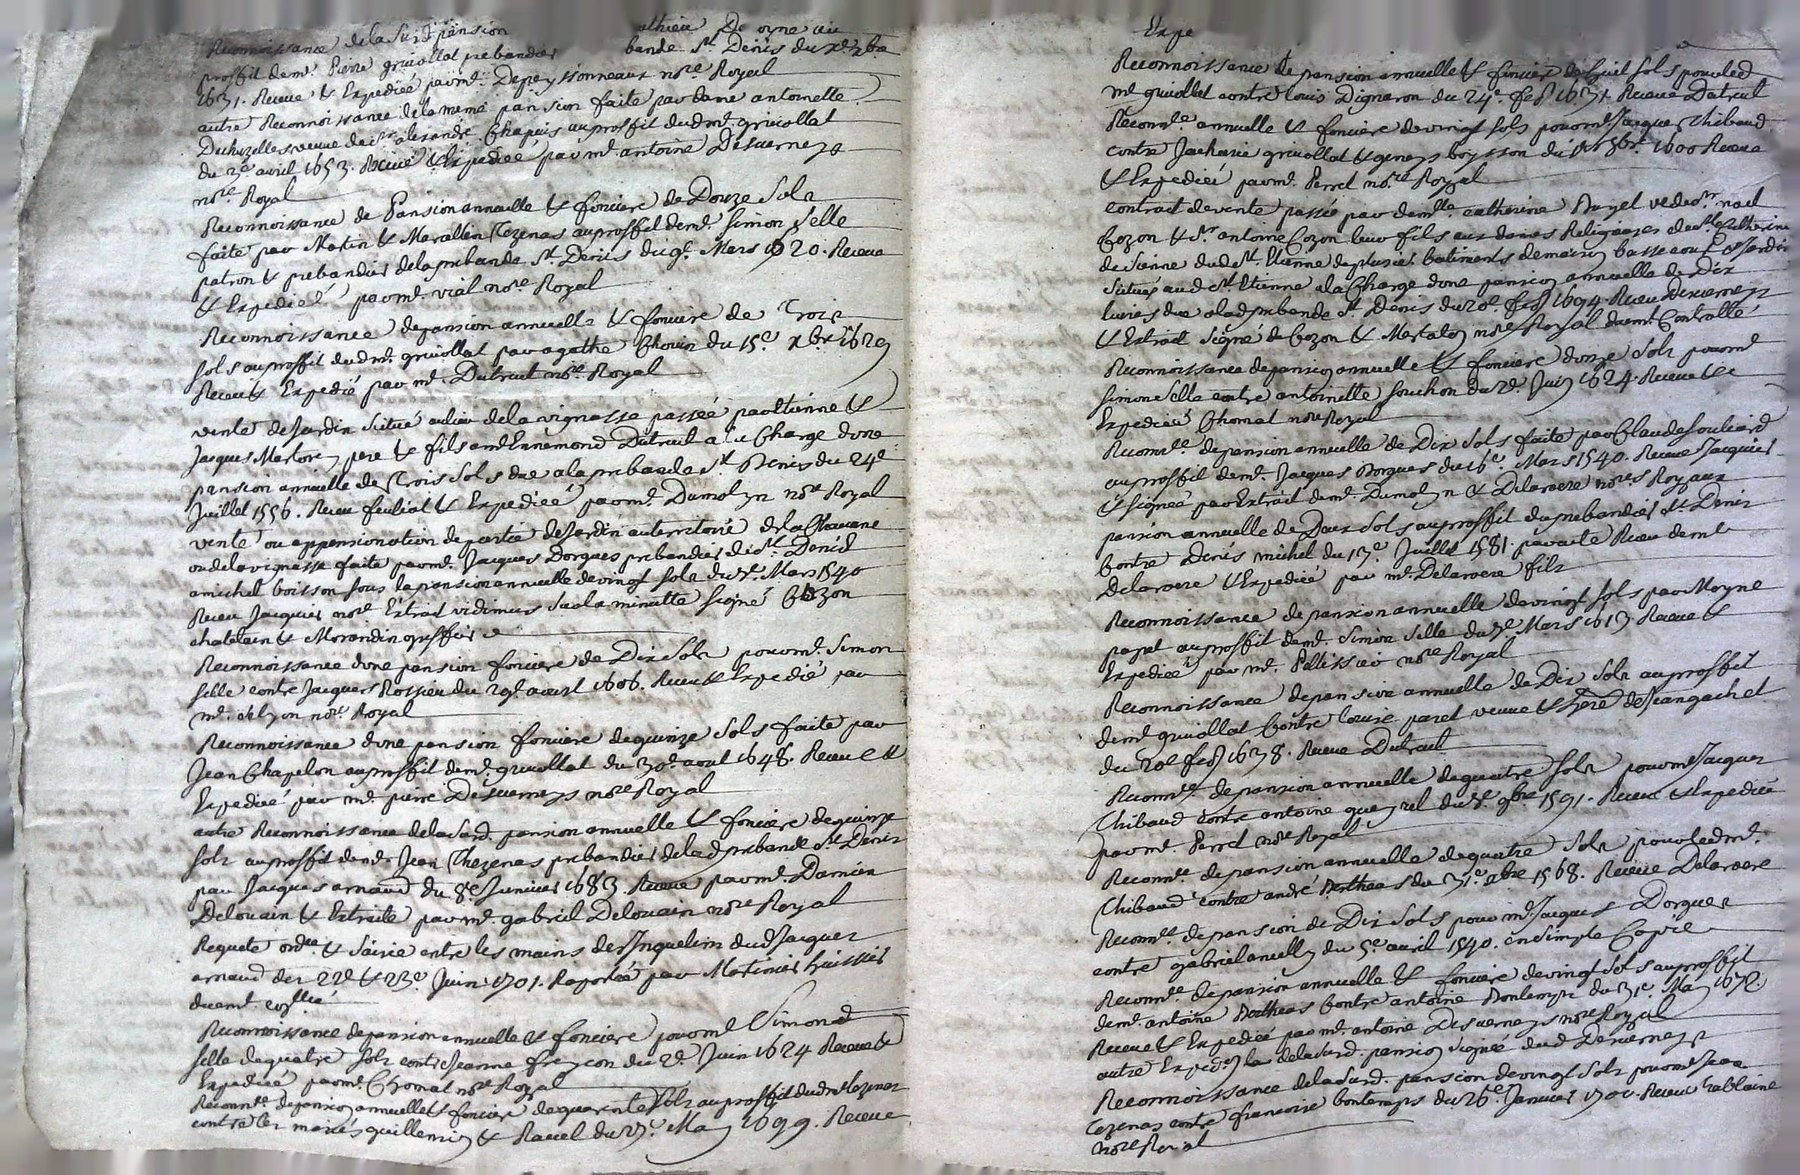 Reconnoissance de la susd pansion athieu
proffit de mr. Pierre griuollat prebandier bande St. Denis du xbre
1631. Receue & Expediée par mr. Depeyssonneaux nore Royal
autre Reconnoissance de la meme pansion faite par dame antoinette
veuve de sr. alexandre Chapuis au proffit dud mr. griuollat
du 2e. avril 1653. Receue & Expediée par mr. antoine Desuerneys
nore Royal
Reconnoissance de Pansion annuelle & fonciere de Douze Solz
faite par Matin & Marallin Tezenas au proffit de mr. Simon Selle
patron & prebandier de la prebande St. Denis du 9e. Mars 1620. Receue
& Expediée par mr. vial nore Royal
Reconnoissance de pansion annuelle & fonciere de Trois
sols au proffit dud mr. griuollat par agathe Chouin du 15e. xbre 1629
Receu & Expedié par mr. Dutreuil nore Royal
vente de Jardin Situé au lieu de la vignasse passée par Etienne &
Jacques Martorey pere & fils a mr Ennemond Dutreuil a la Charge dune
pansion annuelle de Trois Sols due a la prebanda St. Denis du 24e
Juillet 1556. Receu feuliat & Expediée par mr. Dumolyn nore Royal
vente ou appensionation de partie de Jardin au territoire de la
ou de la vignasse faite par mr. Jacques Dorgues prebandier de St. Denis
a michel boisson sous la pansion annuelle de vingt sols du Mars 1540
Receu Jacquier nore. Extrait vidimus sur la minutte signé Cozon
chatelain & Morandin greffier
Reconnoissance dune pansion fonciere de Dix Solz pour mr. Simon
Selle contre Jacques Rossieu du 29e aoust 1606. Receu & Expedié par
mr. nore. Royal
Reconnoissance dune pansion fonciere de quinze Sols faite par
Jean Chapelon au proffit de mr. griuollat du 30e. aout 1648. Receue &
Expediée par mr. pierre Desuerneys nore Royal
autre Reconnoissance de la Susd. pansion annuelle & fonciere de quinze
solz au proffit de mr. Jean Thezenas prebandier de lad prebande St Denis
par Jacques arnaud du 8e. Januier 1683. Receue par mr. Damien
Delouain & Extraite par mr. gabriel Delouain nore Royal
Requete ordce & Saisie entre les mains des Inquelins dud Jacques
arnaud des 22e & 23e. Juin 1701. Raportée par Matinier huissier
duemt
Reconnoissance de pansion annuelle & fonciere pour mr Simond
Selle de quatre solz contre Jeanne freycon du 2e. Juin 1624 Receue &
Expediée par mr. Thomat nore Royal
Reconnce de pansion annuelle & fonciere de quarente solz au proffit dud mr tezenas
contre les mariés guillemin & Rauel du May 1699. Receue
Expe
Reconnoissance de pansion annuelle & fonciere de huit sols pour led
mr griuollat contre Louis Dignaron du 24e. feb 1631. Receue Dutreul
Reconnce annuelle & fonciere de vingt sols pour mr Jacques Thibaud
contre Jacharie griuollat & geneys boysson du 8bre. 1600 Receue
& Expediée par mr. Perrel nore Royal
Contract de vente passée par demlle. catherine Duzel vede sr. noel
Cozon & Sr. antoine Cozon leur fils aux dames Religieuses de Ste Catherine
de Sienne dud St. Etienne de plusieurs batiments de maison basse cour & Jardin
Situés aud St. Etienne a la Charge dune pansion annuelle de Dix
liures due a lad prebende St. Denis du 20e. feb 1694. Receu Desuerneys
& Extrait Signé de Cozon & Matalon nore Royal duemt Controllé
Reconnoissance de pansion annuelle & fonciere donze Solz pour mr
Simon Selle contre antoinette Souchon du 2e. Juin 1624. Receue &
Expediée Thomat nore Royal
Reconnce. de pansion annuelle de Dix Sols faite par Claude Souliard
au proffit de mr. Jacques Dorgues du 16e. Mars 1540. Receue Jacquier
& signée par Extrait de mr. Dumolyn & Delaroere nores Royaux
pansion annuelle de Deux Sols au proffit du prebandier St Denis
Contre Denis michel du 17e. Juillet 1581. par acte Receu de mr
Delaroere & Expediée par mr. Delaroere fils
Reconnoissance de pansion annuelle de vingt sols par Moyne
payet au proffit de mr. Simon Selle du Mars 1613 Receue &
Expediée par mr. Pellissier nore Royal
Reconnoissance de pansion annuelle de Dix Solz au proffit
de mr griuollat Contre Louise paret veuve & here de Jean gachet
du 20e feb 1638. Receue Dutreuil
Reconnce. de pansion annuelle de quatre solz pour mr Jacques
Thibaud Contre antoine 9bre 1591. Receue & Expediée
par mr. Perrel nore Royal
Reconnce. de pansion annuelle de quatre Solz pour led mr.
Thibaud contre andré Bertheas du 31e. xbre 1568. Receue Delaroere
Reconnce de pansion de Dix Sols pour mr. Jacques Dorgues
contre gabriel du 5e. avril 1540. en Simple Copie
Reconnce de pansion annuelle & fonciere de vingt sols au proffit
de mr. antoine Bertheas Contre antoine Bontemps du 31e. May 1672.
Receue & Expediée par mr. antoine Desuerneys nore Royal
autre Expedon de la Susd. pansion Signée dud Desuerneys
Reconnoissance de la Susd. pansion de vingt Solz pour mr Jean
Tezenas contre francoise bontemps du 26e. Januier 1700. Receue chablaine
nore Royal